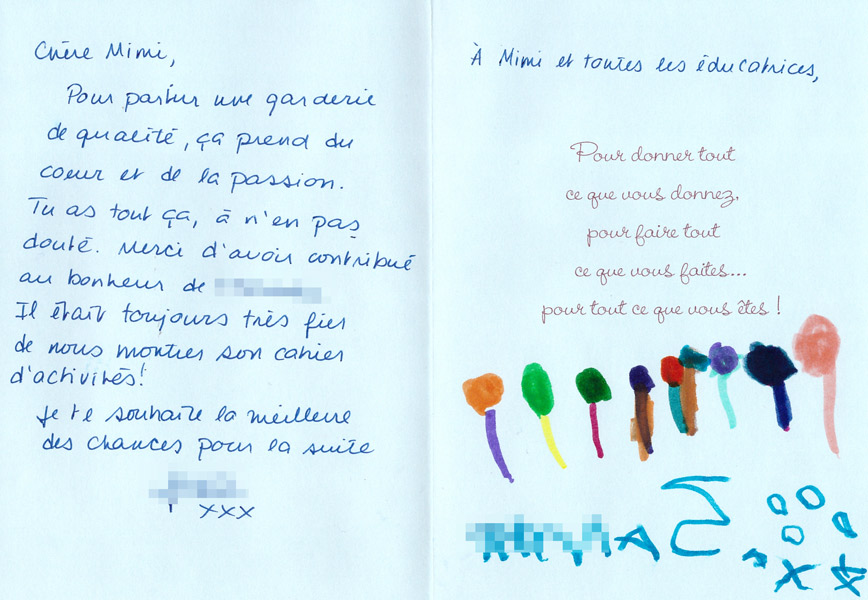 Chère Mimi,
Pour partir une garderie
de qualité, ça prend du
coeur et de la passion.
Tu as tout ça, à n'en pas
douté. Merci d'avoir contribué
au bonheur de
Il était toujours très fier
de nous montrer son cahier
d'activités!
Je te souhaite la meilleure
des chances pour la suite
xxx
À Mimi et toutes les éducatrices,
Pour donner tout
ce que vous donnez,
pour faire tout
ce que vous faites...
pour tout ce que vous êtes !